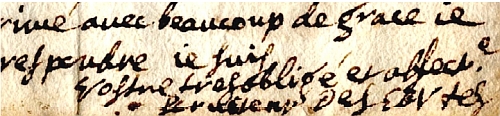 rimé avec beaucoup de grace ie
respondre ie suis
Vostre tresobligé et affect.e
Des Cartes